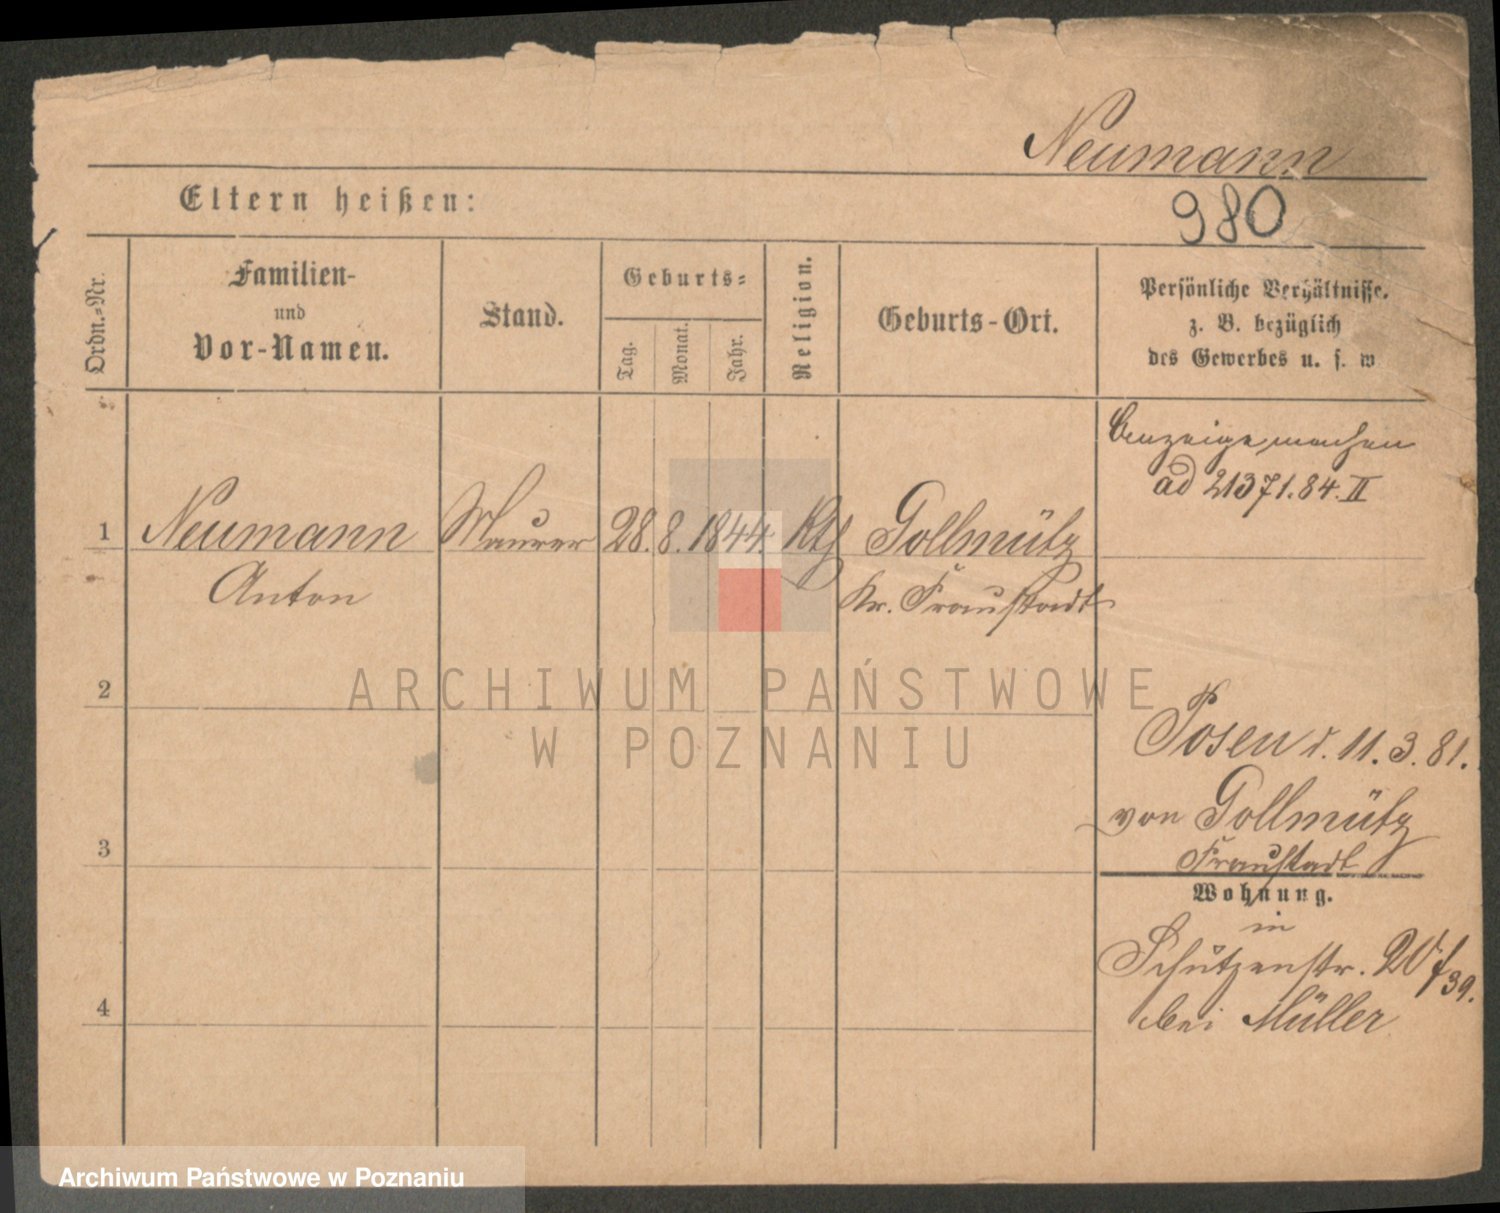 Neumann
Eltern heißen:
980
Ordn.-Nr.
Familien-
und
Vor-Namen.
Stand.
Geburts-
Tag.
Monat.
Jahr.
Religion.
Geburts-Ort.
Persönliche Verhältnisse.
z. B. bezüglich
des Gewerbes u. s. w
Anzeige machen
ad 21371.84. II
1 Neumann Maurer 28. 8. 1844 Kth Gollmütz
Anton Kr. Fraustadt
2
Posen d. 11. 3. 81.
von Gollmütz
Fraustadt
3
Wohnung.
in
Schützenstr. 20/39.
bei Müller
4
ARCHIWUM PAŃSTWOWE
W POZNANIU
Archiwum Państwowe w Poznaniu